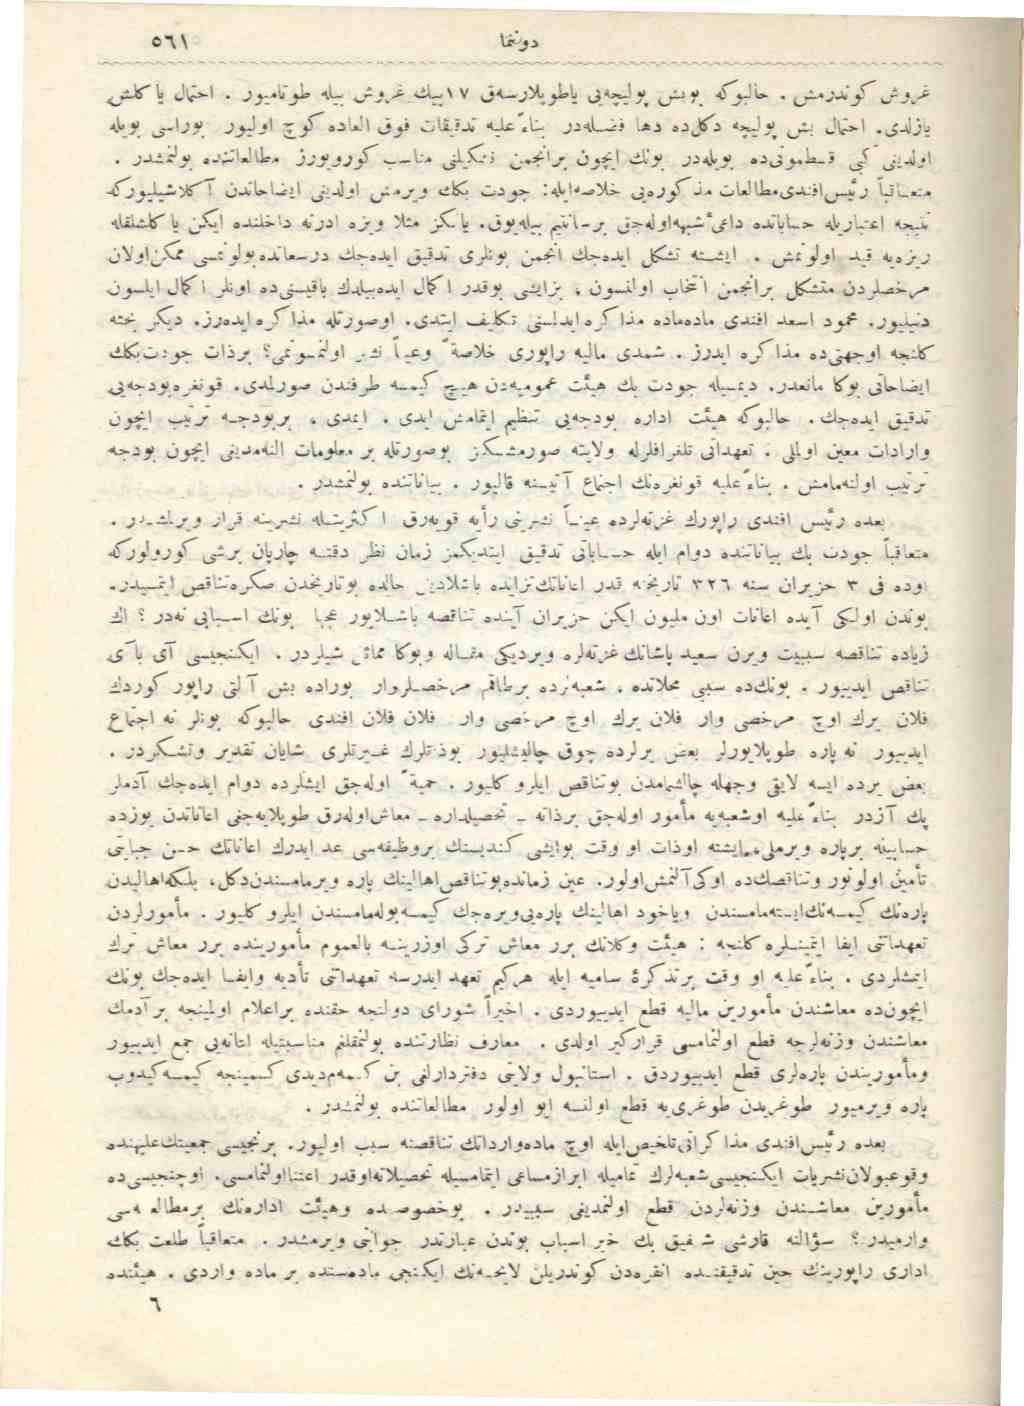 دوننما ٥٦١
غروش كوندرمش . حالبوكه بوبش پوليچه‌يى ياطوپلارسه‌ق ١٧بيك غروش بيله طوتاميور . احتمال ياكلش
يازلدى. احتمال بش پوليچه دكل‌ده دها فضله‌در بناءً عليه تدقيقات فوق العاده كوچ اوليور بوراسى بويله
اولدينى كبى قسطمونى‌ده بويله‌در بونك ايچون برانجمن تشكيلنى مناسب كوروپورز مطالعاتنده بولنمشدر .
متعاقباً رئيس‌افندى‌مطالعات مذكوره‌يى خلاصه‌ايله: جودت بكك ويرمش اولدينى ايضاحاتدن آكلاشيليوركه
نتيجه اعتباريله حساباتده داعىٔ‌شبهه‌اوله‌جق بر سانتيم بيله‌يوق. يالكز مثلا ويزه ادرنه داخلنده ايكن ياكلشلقله
ريزه‌يه قيد اولونمش . ايشته تشكل ايده‌جك انجمن بونلرى تدقيق ايده‌جك درسعادتده‌بولونمسى ممكن‌اولان
مرخصلردن متشكل برانجمن انتخاب اولنسون ، برايشى بوقدر اكمال ايده‌بيلدك باقيسنى‌ده اونلر اكمال ايلسون
دنيليور. محمود اسعد افندى ماده‌ماده مذاكره ايدلسنى تكليف ايتدى. اوصورتله مذاكره ايده‌رز. ديكر بحثه
كلنجه اوجهتى‌ده مذاكره ايدرز . شمدى ماليه راپورى خلاصةً وعيناً نشر اولنمسونمى؟ برذات جودت‌بكك
ايضاحاتى بوكا مانعدر. ديمسيله جودت بك هيئت عموميه‌دن هيچ كيمسه طرفندن صورلمدى. قونغره‌بودجه‌يى
تدقيق ايده‌جك . حالبوكه هيئت اداره بودجه‌يى تنظيم ايتمامش ايدى . ايمدى ، بربودجه ترتيب ايچون
وارادات معين اولملى . تعهداتى تلغرافلرله ولايته صورمشسكز بوصورتله بر معلومات النه‌مدينى ايچون بودجه
ترتيب اولنه‌مامش . بناءً‌عليه قونغره‌نك اجتماع آتيسنه قاليور . بياناتنده بولنمشدر .
بعده رئيس افندى راپورك غزته‌لرده عيناً نشرينى رأيه قويه‌رق اكثريتله نشرينه قرار ويرلمشدر .
متعاقباً جودت بك بياناتنده دوام ايله حساباتى تدقيق ايتديكمز زمان نظر دقتمه چارپان برشى كورولوركه
اوده فى ٣ حزيران سنه ٣٢٦ تاريخنه قدر اعاناتك‌تزايده باشلاديغى حالده بوتاريخدن صكره‌تناقص ايتمسيدر.
بوندن اولكى آيده اعانات اون مليون ايكن حزيران آينده تناقصه باشلايور عجبا بونك اسبابى نه‌در ؟ اك
زياده تناقصه سببيت ويرن سعيد پاشانك غزته‌لره ويرديكى مقاله وبوكا مماثل شيلردر . ايكنجيسى آى باآى
تناقص ايدييور . بونك‌ده سببى محلاتده ، شعبه‌لرده برطاقم مرخصلروار بوراده بش آلتى راپور كوردك
فلان يرك اوچ مرخصى وار فلان يرك اوچ مرخصى وار فلان فلان افندى حالبوكه بونلر نه اجتماع
ايدييور نه پاره طوپلايورلر بعض يرلرده چوق چاليشليور بوذاتلرك غيرتلرى شايان تقدير وتشكردر .
بعض يرده ايسه لايقى وجهله چالشمامدن بوتناقص ايلرو كليور . حميةً اوله‌جق ايشلرده دوام ايده‌جك آدملر
پك آزدر بناءً عليه اوشعبه‌يه مأمور اوله‌جق برذاته ـ تحصيلداره ـ معاش‌اوله‌رق طوپلايه‌جغى اعاناتدن يوزده
حسابينه برپاره ويرملى، ايشته اوذات او وقت بوايشى كنديسنك بروظيفه‌سى عد ايدرك اعاناتك حسن جبايتى
تأمين اولونور وتناقصك‌ده اوكى‌آلنمش‌اولور. عين زمانده‌بوتناقص‌اهالينك پاره ويرمامسندن‌دكل، بلكه‌اهاليدن
پاره‌نك كيمسه‌نك‌ايسته‌مامسندن وياخود اهالينك پاره‌يى‌ويره‌جك كيمسه‌بوله‌مامسندن ايلرو كليور . مأمورلردن
تعهداتنى ايفا ايتمينلره كلنجه : هيئت وكلانك برر معاش تركى اوزرينه بالعموم مأموريندە برر معاش ترك
ايتمشلردى . بناءً‌عليه او وقت برتذكرۀ ساميه ايله هركيم تعهد ايدرسه تعهداتنى تأديه وايفا ايده‌جك بونك
ايچون‌ده معاشندن مأمورين ماليه قطع ايدييوردى . اخيراً شوراى دولتجه حقنده براعلام اولمينجه برآدمك
معاشندن وزنه‌لرجه قطع اولنمامسى قراركير اولدى . معارف نظارتنده بولنمقلغم مناسبتيله اتانه‌يى جمع ايدييور
ومأموريندن پاره‌لرى قطع ايدييوردق . استانبول ولايتى دفتردارلغى بن كسمه‌م‌ديدى كسمينجه كيمسه‌كيدوب
پاره ويرميور طوغريدن طوغرى‌يه قطع اولنسه ايو اولور مطالعاتنده بولنمشدر .
بعده رئيس‌افندى مذاكراتى‌تلخيص‌ايله اوچ ماده‌وارداتك تناقصنه سبب اوليور. برنجيسى جمعيتك‌عليهنده
وقوعبولان‌نشريات ايكنجيسى‌شعبه‌لرك تماميله ابرازمساعى ايتمامسيله تحصيلاته‌اوقدر اعتنااولنمامسى. اوچنجيسى‌ده
مأمورين معاشندن وزنه‌لردن قطع اولنمدينى سببيدر . بوخصوصده وهيئت اداره‌نك برمطالعه‌سى
وارميدر؟ سؤالنه قارشى شفيق بك خير اسباب بوندن عبارتدر جوابنى ويرمشدر . متعاقباً طلعت بكك
ادارى راپورينك حين تدقيقنده انقره‌دن كوندريلن لايحه‌نك ايكنجى ماده‌سنده بر ماده واردى . هيئتده
٦